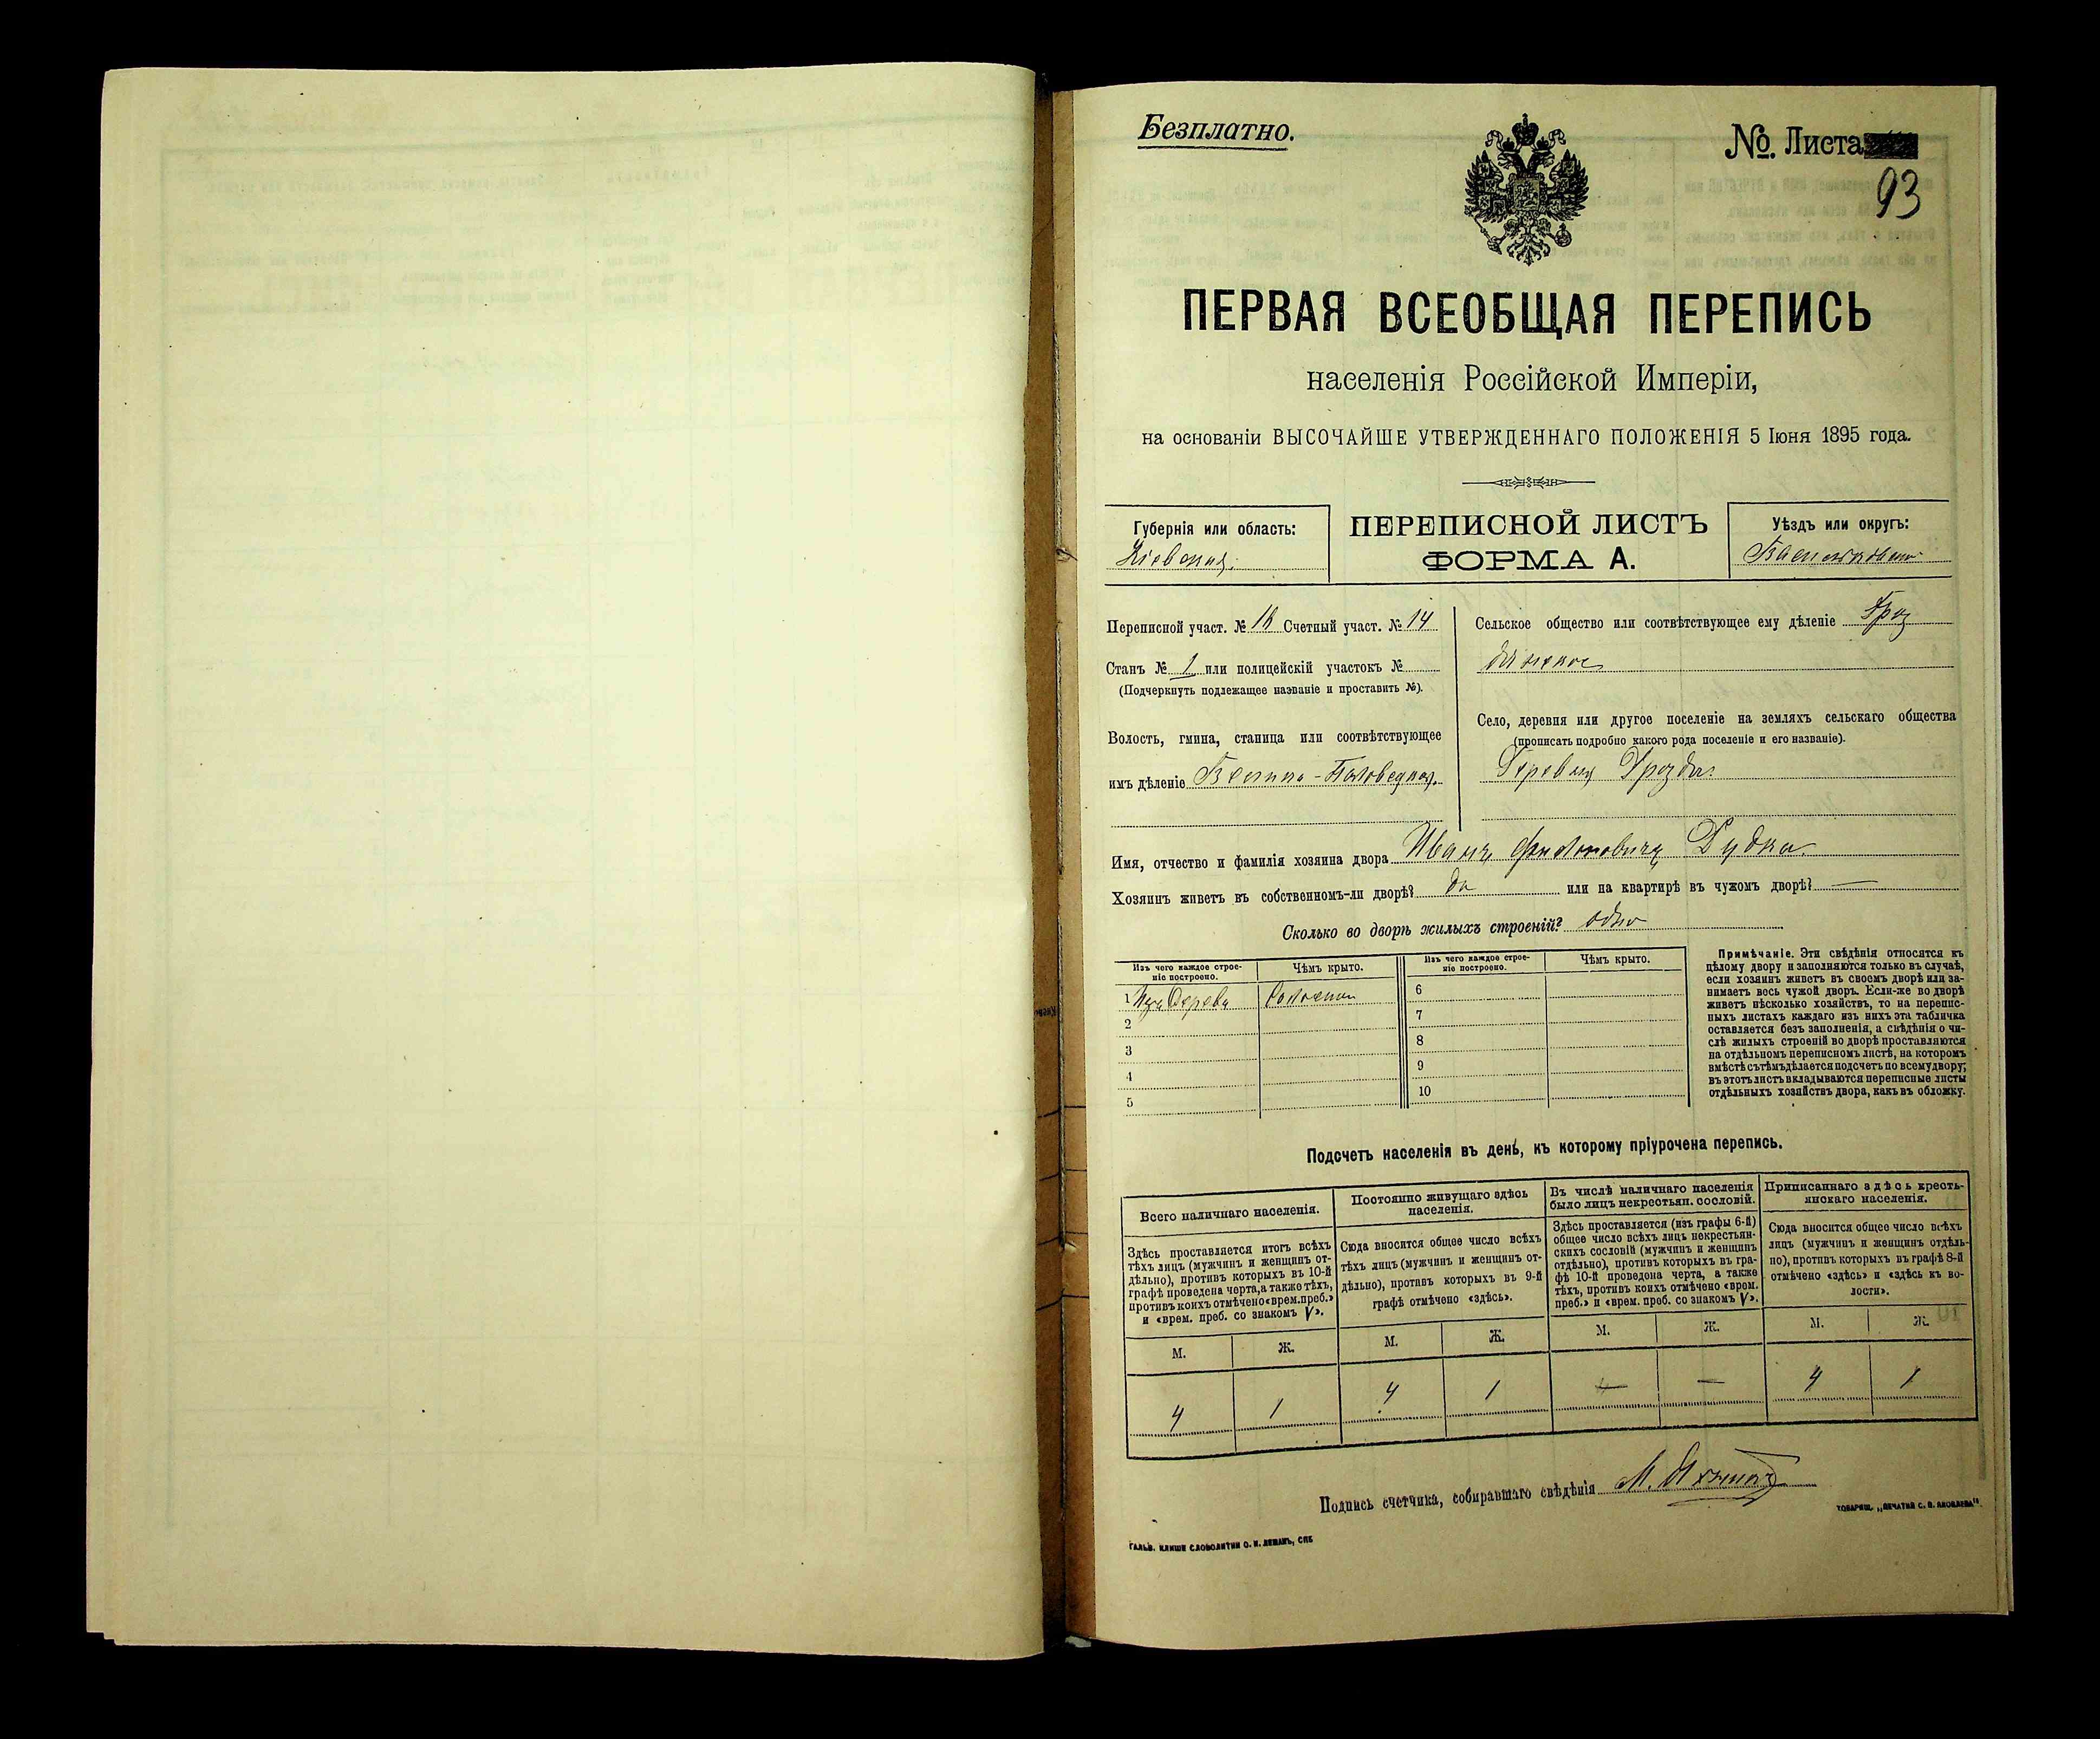 Безплатно.
№. Листа
93
ПЕРВАЯ ВСЕОБЩАЯ ПЕРЕПИСЬ
населенія Россійской Имперіи,
на основаніи ВЫСОЧАЙШЕ УТВЕРЖДЕННАГО ПОЛОЖЕНІЯ 5 Іюня 1895 года.
Губернія или область:
Кіевская
ПЕРЕПИСНОЙ ЛИСТЪ
ФОРМА А.
Уѣздъ или округъ:
Переписной участ. № Счетный участ. № 14
Станъ № 1 или полицейскій участокъ №
(Подчеркнуть подлежащее названіе и проставить №).
Волость, гмина, станица или соотвѣтствующее
имъ дѣленіе
Сельское общество или соотвѣтствующее ему дѣленіе Дроз
дянское
Село, деревня или другое поселеніе на земляхъ сельскаго общества
(прописать подробно какого рода поселеніе и его названіе).
Дрозды
Имя, отчество и фамилія хозяина двора Иванъ Филиповичъ Дудка
Хозяинъ живетъ въ собственномъ-ли дворѣ? да или на квартирѣ въ чужомъ дворѣ? —
Сколько во дворѣ жилыхъ строеній? одно
Изъ чего каждое строе-
ніе построено.
Чѣмъ крыто.
Изъ чего каждое строе-
ніе построено.
Чѣмъ крыто.
1 Изъ дерева Соломой
2
3
4
5
6
7
8
9
10
Примѣчаніе. Эти свѣдѣнія относятся къ
цѣлому двору и заполняются только въ случаѣ,
если хозяинъ живетъ въ своемъ дворѣ или за-
нимаетъ весь чужой дворъ. Если-же во дворѣ
живетъ нѣсколько хозяйствъ, то на перепис-
ныхъ листахъ каждаго изъ нихъ эта табличка
оставляется безъ заполненія, а свѣдѣнія о чи-
слѣ жилыхъ строеній во дворѣ проставляются
на отдѣльномъ переписномъ листѣ, на которомъ
вмѣстѣ съ тѣмъ дѣлается подсчетъ по всему двору;
въ этотъ листъ вкладываются переписные листы
отдѣльныхъ хозяйствъ двора, какъ въ обложку.
Подсчетъ населенія въ день, къ которому пріурочена перепись.
Всего наличнаго населенія.
Здѣсь проставляется итогъ всѣхъ
тѣхъ лицъ (мужчинъ и женщинъ от-
дѣльно), противъ которыхъ въ 10-й
графѣ проведена черта, а также тѣхъ,
противъ коихъ отмѣчено «врем. преб.»
и «врем. преб. со знакомъ V».
М. Ж.
4 1
Постоянно живущаго здѣсь
населенія.
Сюда вносится общее число всѣхъ
тѣхъ лицъ (мужчинъ и женщинъ от-
дѣльно), противъ которыхъ въ 9-й
графѣ отмѣчено «здѣсь».
М. Ж.
4 1
Въ числѣ наличнаго населенія
было лицъ некрестьян. сословій.
Здѣсь проставляется (изъ графы 6-й)
общее число всѣхъ лицъ некрестьян-
скихъ сословій (мужчинъ и женщинъ
отдѣльно), противъ которыхъ въ гра-
фѣ 10-й проведена черта, а также
тѣхъ, противъ коихъ отмѣчено «врем.
преб.» и «врем. преб. со знакомъ V».
М. Ж.
— —
Приписаннаго здѣсь кресть-
янскаго населенія.
Сюда вносится общее число всѣхъ
лицъ (мужчинъ и женщинъ отдѣль-
но), противъ которыхъ въ графѣ 8-й
отмѣчено «здѣсь» и «здѣсь къ во-
лости».
М. Ж.
4 1
Подпись счетчика, собиравшаго свѣдѣнія М.
ГАЛЬВ. КЛИШЕ СЛОВОЛИТНИ О. И. ЛЕМАНЪ, СПБ
ТОВАРИЩ. „ПЕЧАТНЯ С. П. ЯКОВЛЕВА".